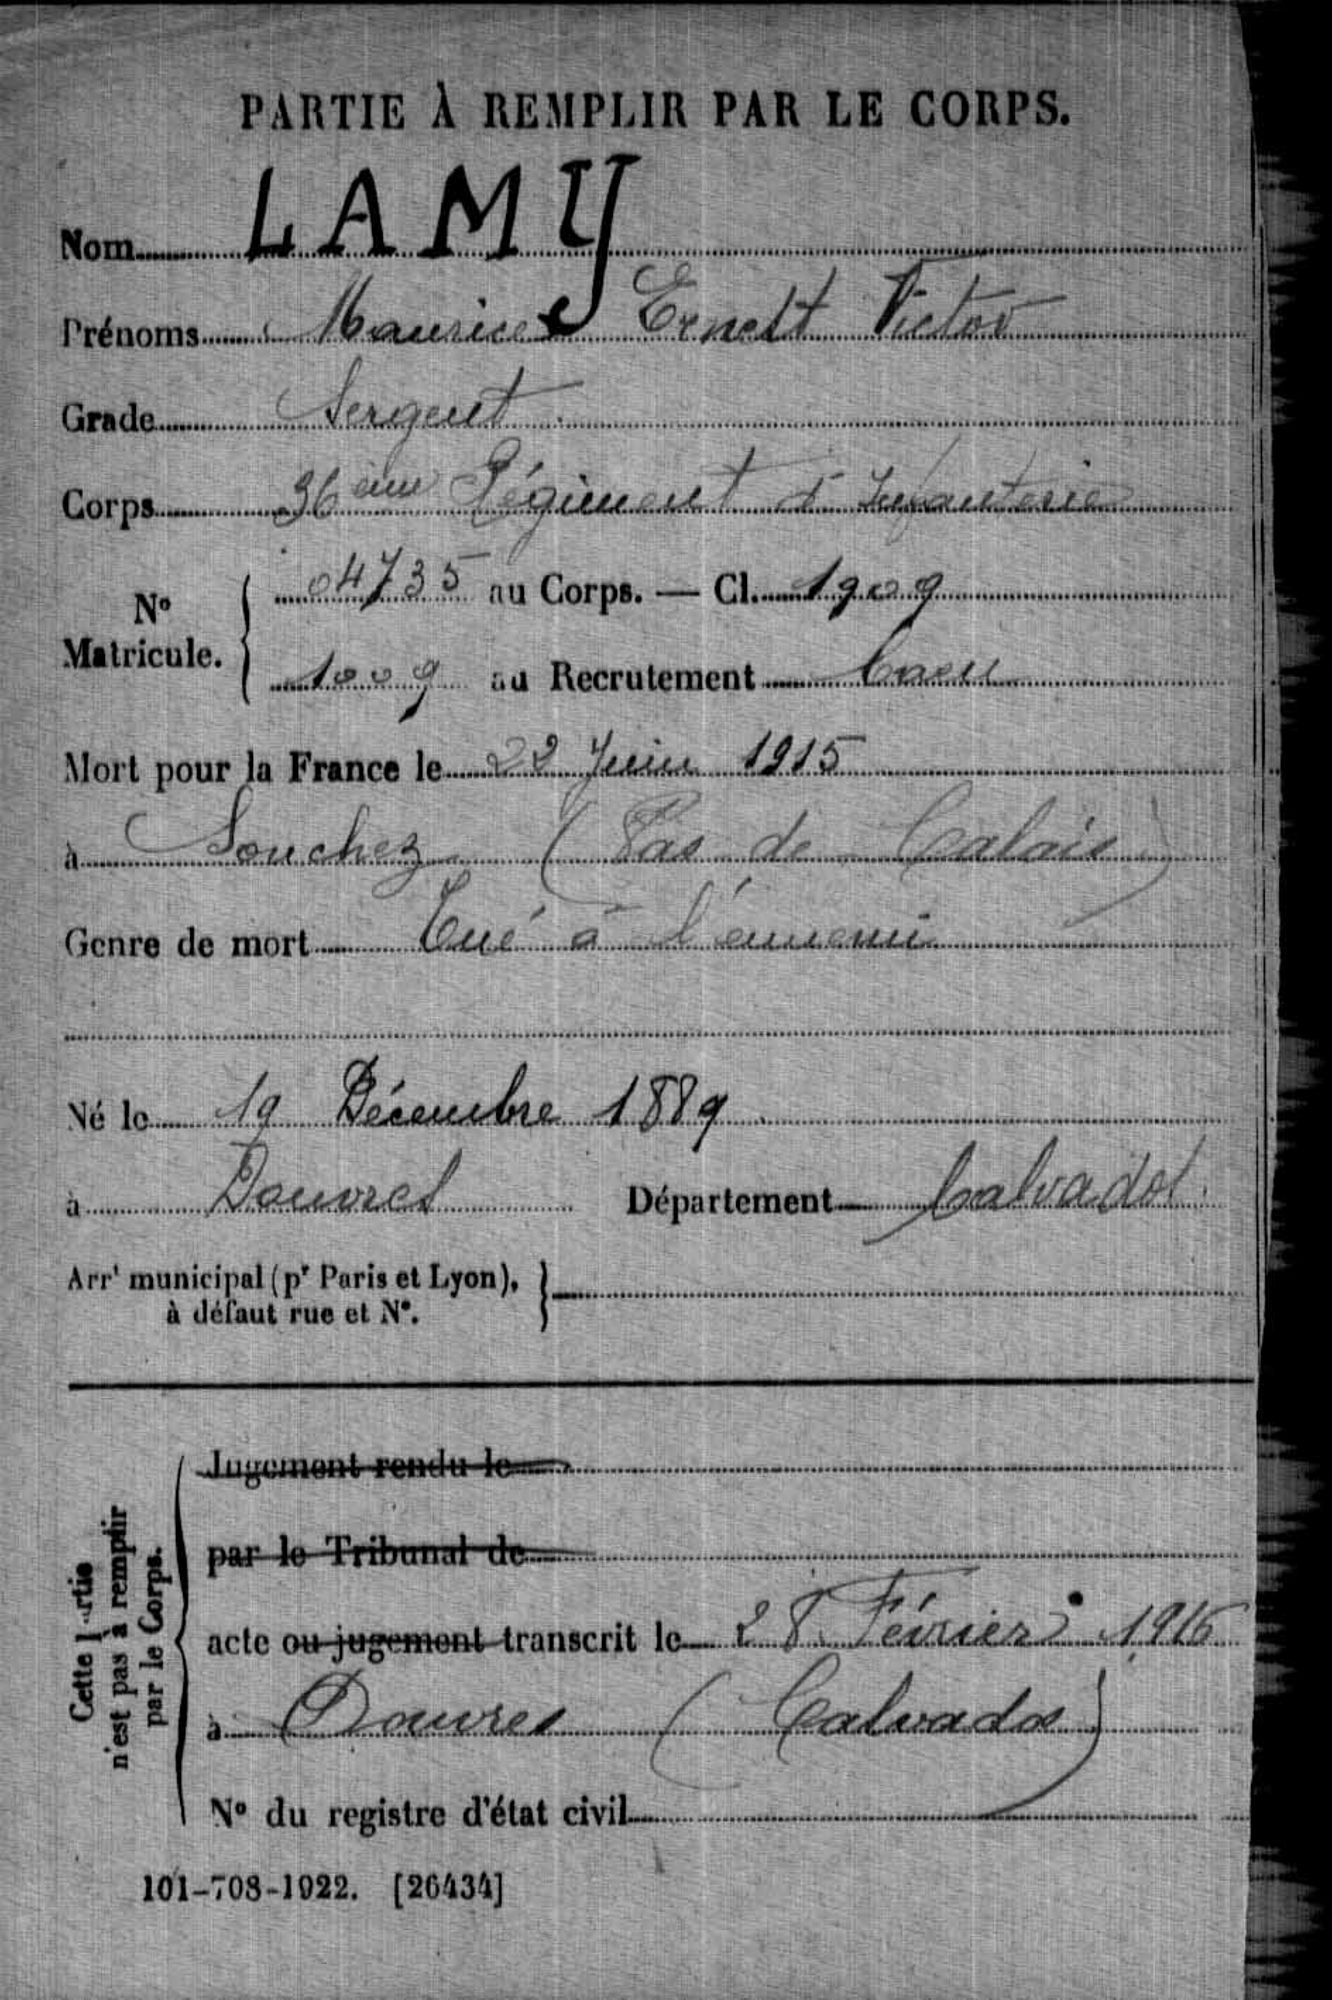 PARTIE À REMPLIR PAR LE CORPS.
Nom LAMY
Prénoms Maurice Ernest Victor
Grade Sergent
Corps 36ème Régiment d'Infanterie
N° Matricule. { 04735 au Corps. — Cl. 1909
1009 au Recrutement Caen
Mort pour la France le 22 Juin 1915
à Souchez (Pas de Calais)
Genre de mort Tué à l'ennemi
Né le 19 Décembre 1889
à Douvres Département Calvados
Arrt municipal (pr Paris et Lyon), }
à défaut rue et N°.
Cette partie n'est pas à remplir par le Corps.
Jugement rendu le
par le Tribunal de
acte ou jugement transcrit le 28 Février 1916
à Douvres (Calvados)
N° du registre d'état civil
101-708-1922. [26434]